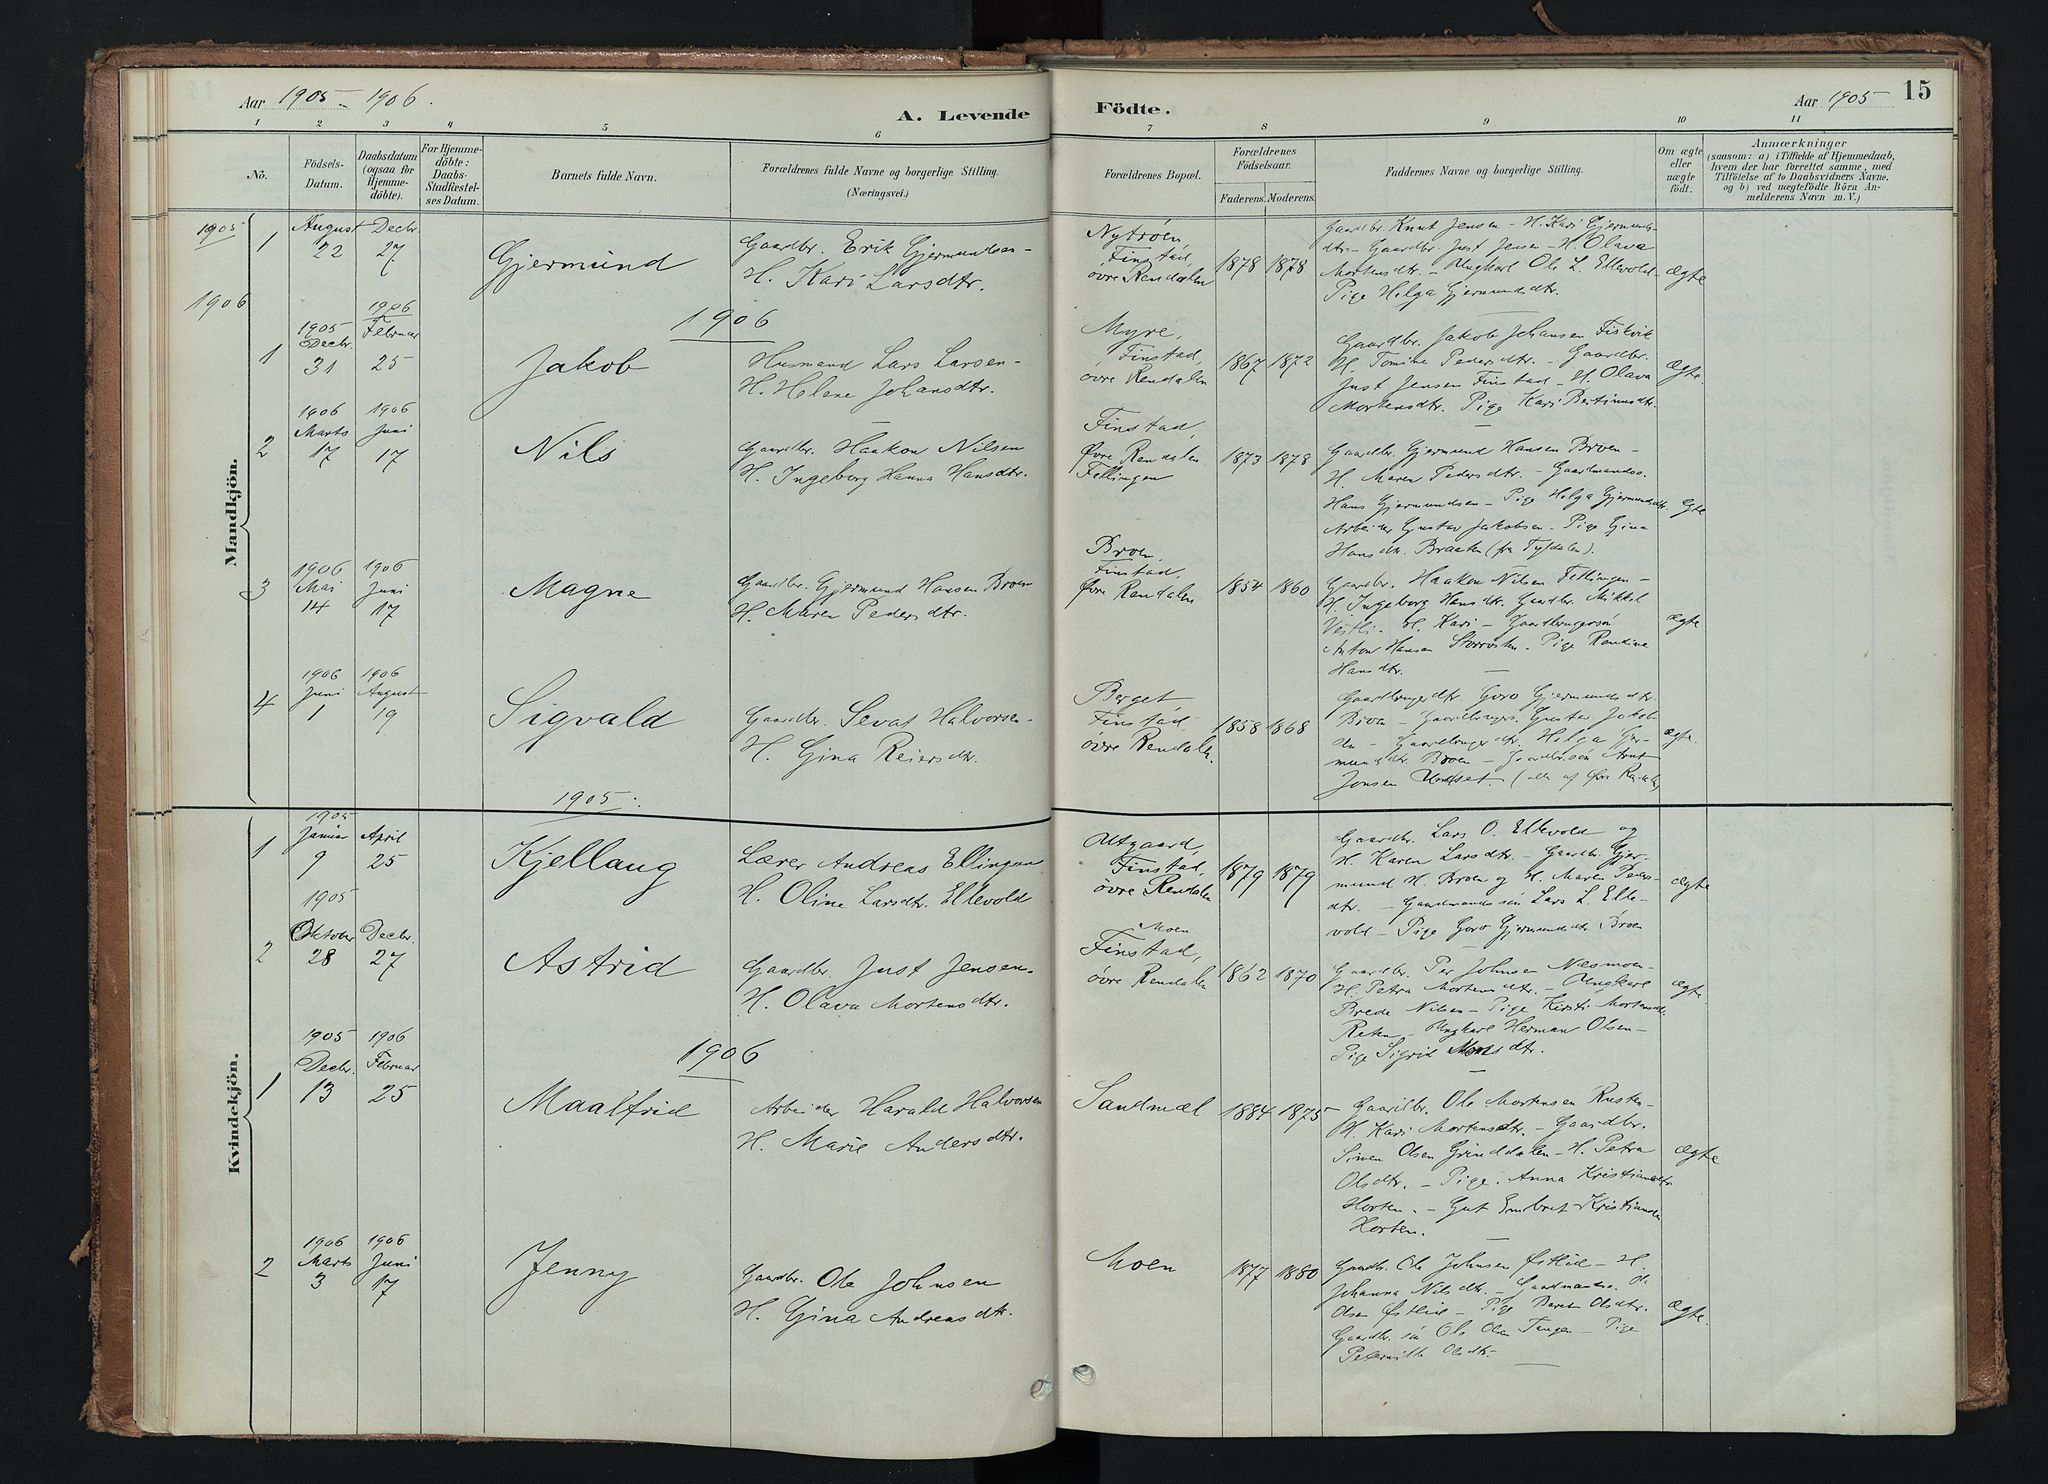 Aar 1905 - 1906.
A. Levende
Födte.
Aar 1905
15
1 2 3 4 5 6 7 8 9 10 11
No.
Födsels-
Datum.
Daabsdatum
(ogsaa för
Hjemme-
döbte).
For Hjemme-
döbte:
Daabs-
Stadfæstel-
ses Datum.
Barnets fulde Navn.
Forældrenes fulde Navne og borgerlige Stilling.
(Næringsvei.)
Forældrenes Bopæl.
Forældrenes
Födselsaar.
Faderens. Moderens.
Faddernes Navne og borgerlige Stilling.
Om ægte
eller
uægte
födt.
Anmærkninger
(saasom: a) i Tilfælde af Hjemmedaab,
hvem der har forrettet samme, med
Tilföielse af to Daabsvidners Navne,
og b) ved uægtefödte Börn An-
melderens Navn m. V.)
Mandkjön.
1905
1
August
22
Decbr.
27
Gjermund
Gaardbr. Erik Gjermundsen -
H. Kari Larsdtr.
Nytröen,
Finstad,
övre Rendalen
1878 1878
Gaardbr. Knut Jensen - H. Kari Gjermunds-
dtr. - Gaardbr. Just Jensen - H. Olava
Mortensdtr. - Ungkarl Ole L. Ellevold -
Pige Helga Gjermundsdtr.
ægte
1906
1906
1
1905
Decbr.
31
1906
Februar
25
Jakob
Husmand Lars Larsen -
H. Helene Johansdtr.
Myre,
Finstad,
övre Rendalen
1867 1872
Gaardbr. Jakob Johansen Fiskvik
H. Tomine Pedersdtr. - Gaardbr.
Just Jensen Finstad - H. Olava
Mortensdtr. Pige Kari Bertinusdtr.
ægte
2
1906
Marts
17
1906
Juni
17
Nils
Gaardbr. Haakon Nilsen
H. Ingeborg Hanna Hansdtr.
Finstad,
Övre Rendalen
Fellingen
1873 1878
Gaardbr. Gjermund Hansen Broen -
H. Maren Pedersdtr. - Gaardmands.
Hans Gjermundsen - Pige Helga Gjermundsdtr.
Arbeider Gustav Jakobsen - Pige Gina
Hansdtr. Braaten (fra Tyldalen).
ægte
3
1906
Mai
14
1906
Juni
17
Magne
Gaardbr. Gjermund Hansen Broen
H. Maren Pedersdtr.
Broen,
Finstad,
Övre Rendalen
1854 1860
Gaardbr. Haakon Nilsen Fellingen -
H. Ingeborg Hansdtr. Gaardbr. Mikkel
Vestli - H. Kari - Gaardbrugersön
Anton Hansen - Pige
Hansdtr.
ægte
4
1906
Juni
1
1906
August
19
Sigvald
Gaardbr. Sevat Halvorsen -
H. Gina Reiersdtr.
Berget
Finstad
övre Rendalen.
1858 1868
Gaardbrugerdtr. Goro Gjermundsdtr.
Broen - Gaardbrugers. Gustav Jakob-
sen - Gaardbrugerdtr. Helga Gjer-
mundsdtr. Broen - Gaardbrsön Arnt
Jonsen Undset. (alle af Övre Rendalen)
ægte.
1905.
Kvindekjön.
1
1905
Januar
9
April
25
Kjellaug
Lærer Andreas Ellingsen
H. Oline Larsdtr. Ellevold
Utgaard,
Finstad,
övre Rendalen
1879 1879
Gaardbr. Lars O. Ellevold og
H. Karen Larsdtr. - Gaardbr. Gjer-
mund H. Broen og H. Maren Peders-
dtr. - Gaardmandssön Lars L. Elle-
vold - Pige Goro Gjermundsdtr. Broen
ægte
2
1905
Oktober
28
Decbr.
27
Astrid
Gaardbr. Just Jensen -
H. Olava Mortensdtr.
Moen
Finstad,
övre Rendalen
1862 1870
Gaardbr. Per Johnsen Næsmoen -
H. Petra Mortensdtr. - Ungkarl
Brede Nilsen - Pige Kirsti Mortensdtr.
- Ungkarl Herman Olsen -
Pige Sigrid
ægte
1906
1
1905
Decbr.
13
1906
Februar
25
Maalfrid
Arbeider Harald Halvorsen
H. Marie Andersdtr.
Sandmæl
1884 1875
Gaardbr. Ole Mortensen Rusten -
H. Kari Mortensdtr. - Gaardbr.
Simen Olsen Grinddalen - H. Petra
Olsdtr. - Pige. Anna Kristiansdtr
Horten. - Gut Embret Kristiansen
Horten.
ægte
2
1906
Marts
3
1906
Juni
17
Jenny
Gaardbr. Ole Johnsen
H. Gina Andreasdtr.
Moen
1877 1880
Gaardbr. Ole Johnsen Östlie - H.
Johanna Nilsdtr. - Gaardmands. O.
Olsen Östlie - Pige Beret Olsdtr.
Gaardbr. sön Ole Olsen Tangen - Pige
Olsdtr. -
ægte.